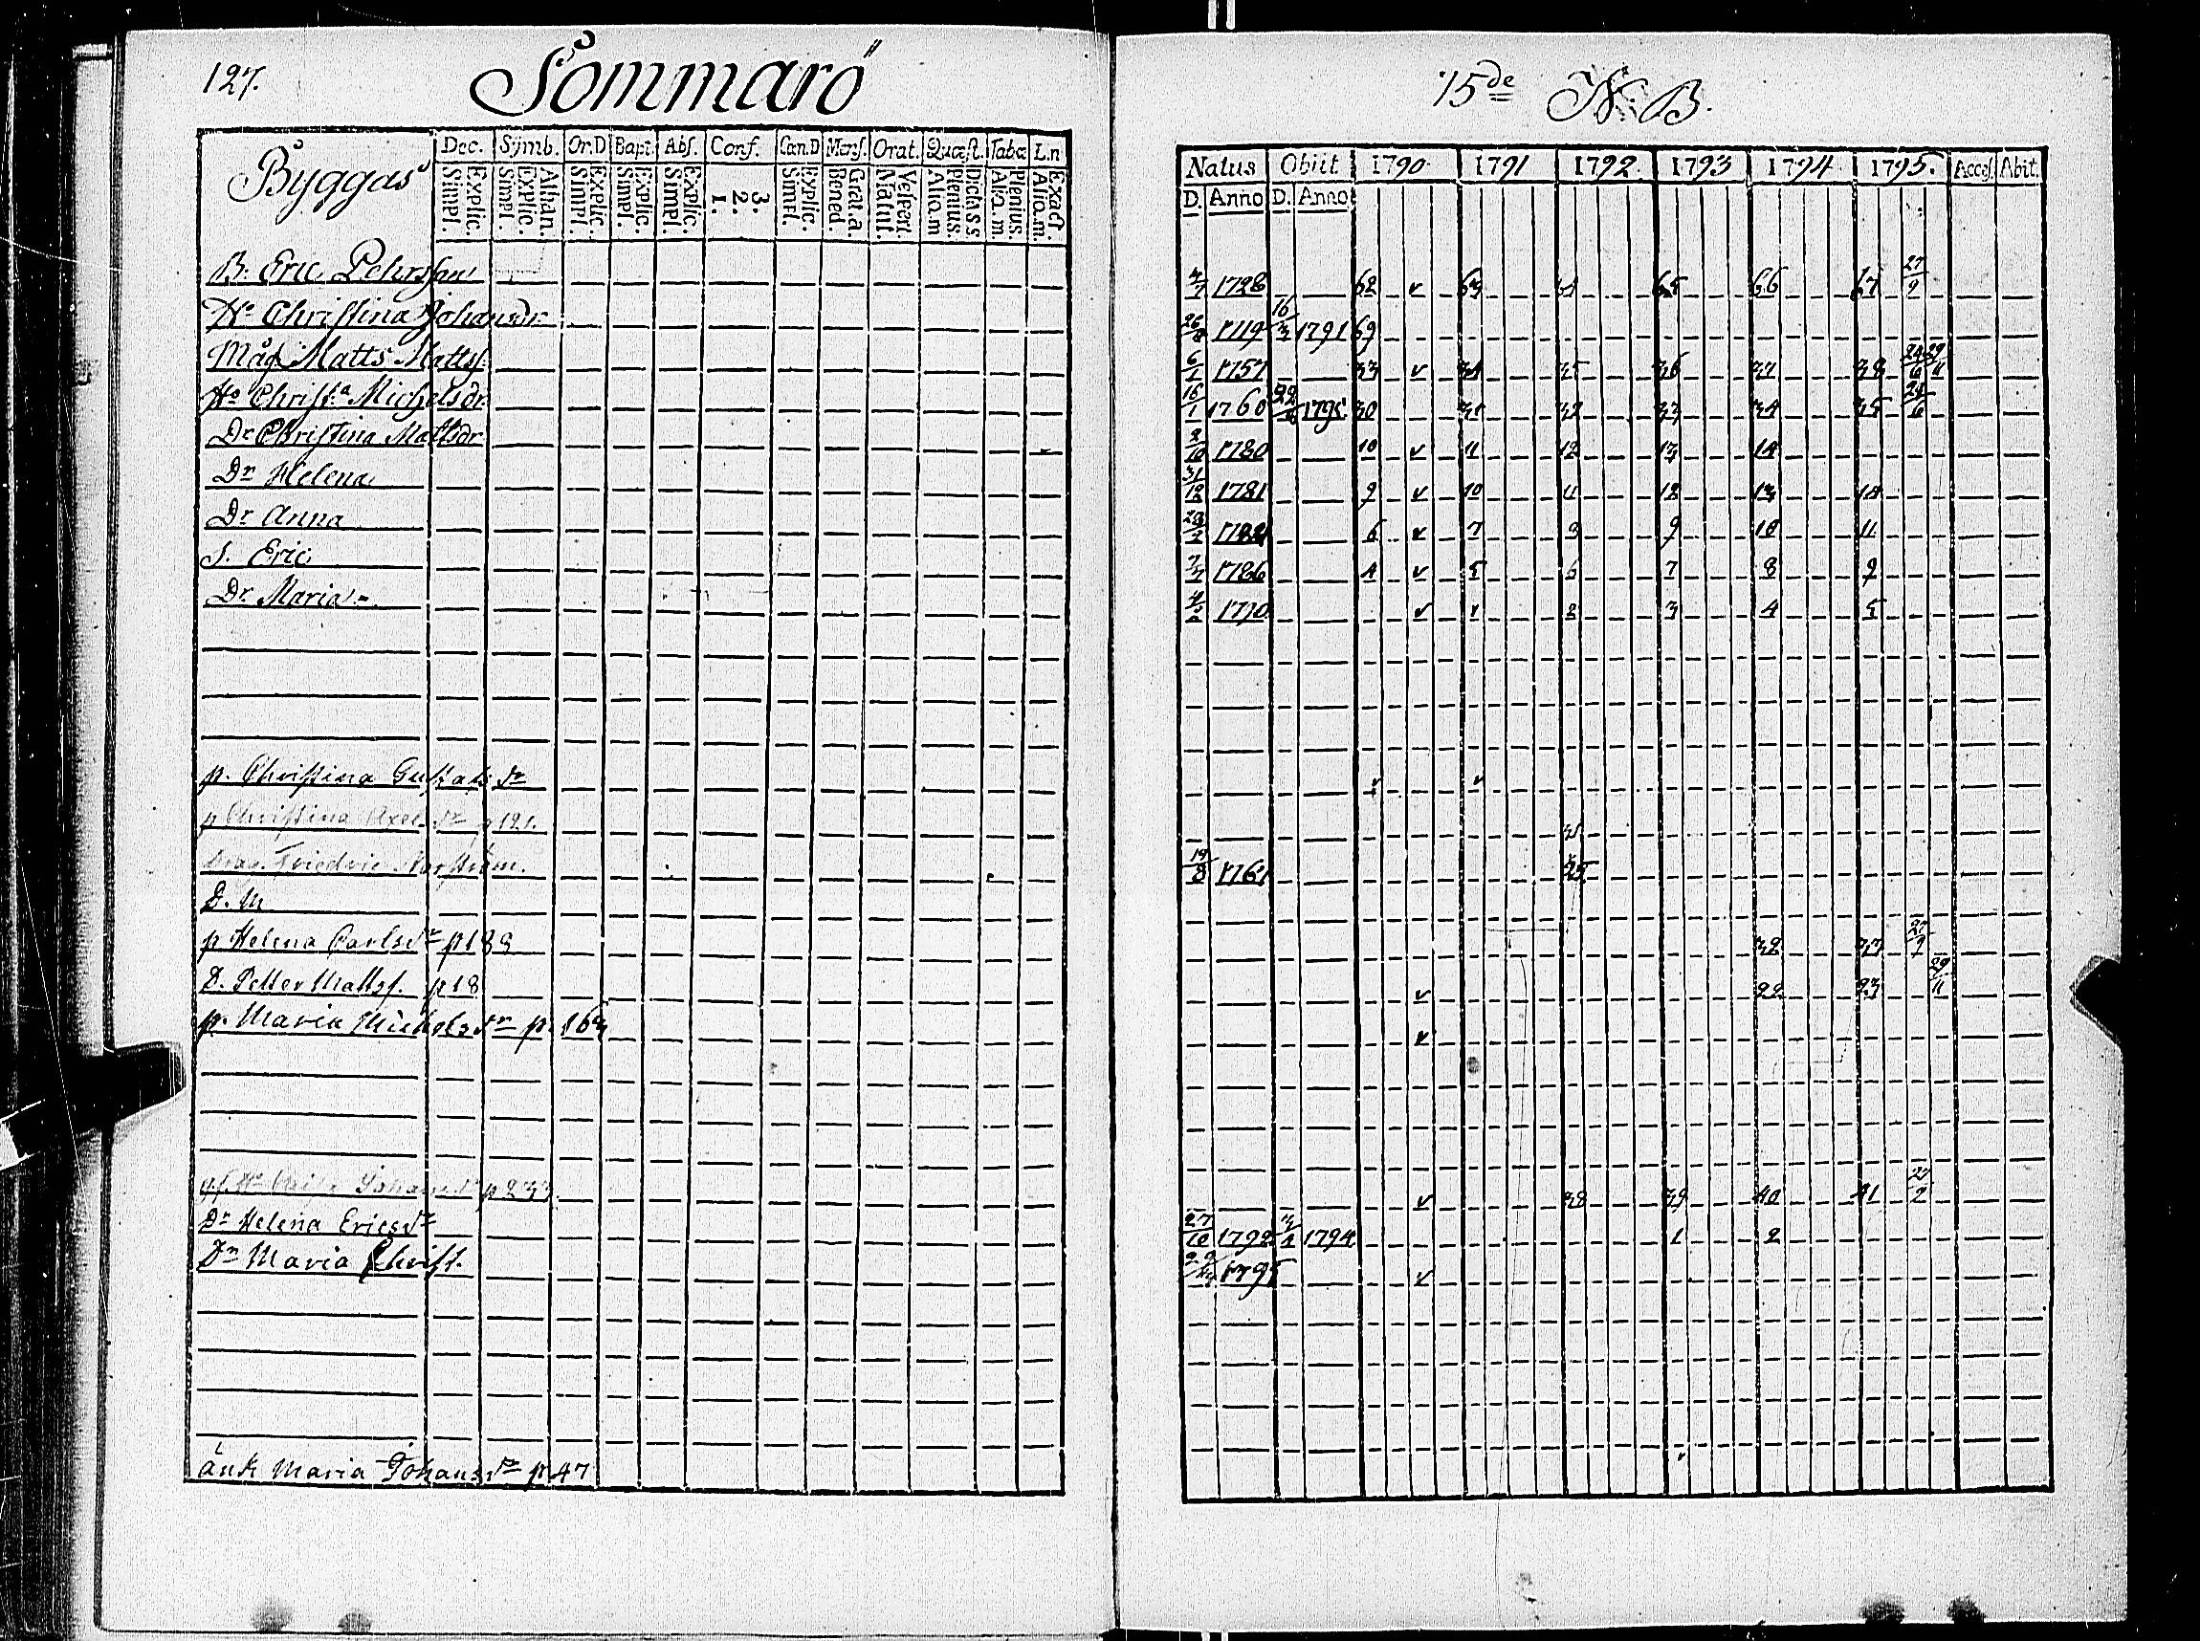 127. Sommarö
Byggas
Dec. Symb. Or.D Bapt. Abs. Conf. Can.D Mens. Orat. Quæst. Tabæ L.n
Simpl. Explic. Simpl. Explic. Athan. Simpl. Explic. Simpl. Explic. Simpl. Explic. 1. 2. 3. Simpl. Explic. Bened. Grat.a. Matut. Vespert. Alio.m Plenius. Dicta s.s. Alio.m. Plenius. Alio.m. Exact.
B. Eric Pehrsson
Ho Christina Johansdr
Måg Matts Matts.
Ho Christ.a Michelsdr
Dr Christina Mattsdr
Dr Helena
Dr Anna
S. Eric
Dr Maria
p. Christina Gustafs dr
p Christina Axel dr p 121.
Friedric
D. M
p Helena Carlsdr p 188
D. Petter Matts. p 18
p. Maria Michelsdr p. 163
Johansdr p 233
Dr Helena Ericsdr
Dr Maria Christ.
änk Maria Johansdr p 47
15de N. B.
Natus Obiit 1790 1791 1792 1793 1794 1795. Acces. Abit.
D. Anno D. Anno
1728 62 v 63 64 65 66 67 27/9
26/8 1719 16/3 1791 69
6/1 1757 33 v 34 35 36 37 38 24/6 29/11
16/1 1760 1795 30 31 32 33 34 35 24/6
1780 10 v 11 12 13 14
31/12 1781 9 v 10 11 12 13 14
1784 6 v 7 8 9 10 11
7/7 1786 4 v 5 6 7 8 9
1790 v 1 2 3 4 5
v v
19/8 1761
32 33 27/9
v 22 23 29/11
v
v 38 39 40 41
27/10 1792 3/4 1794 1 2
1795 v